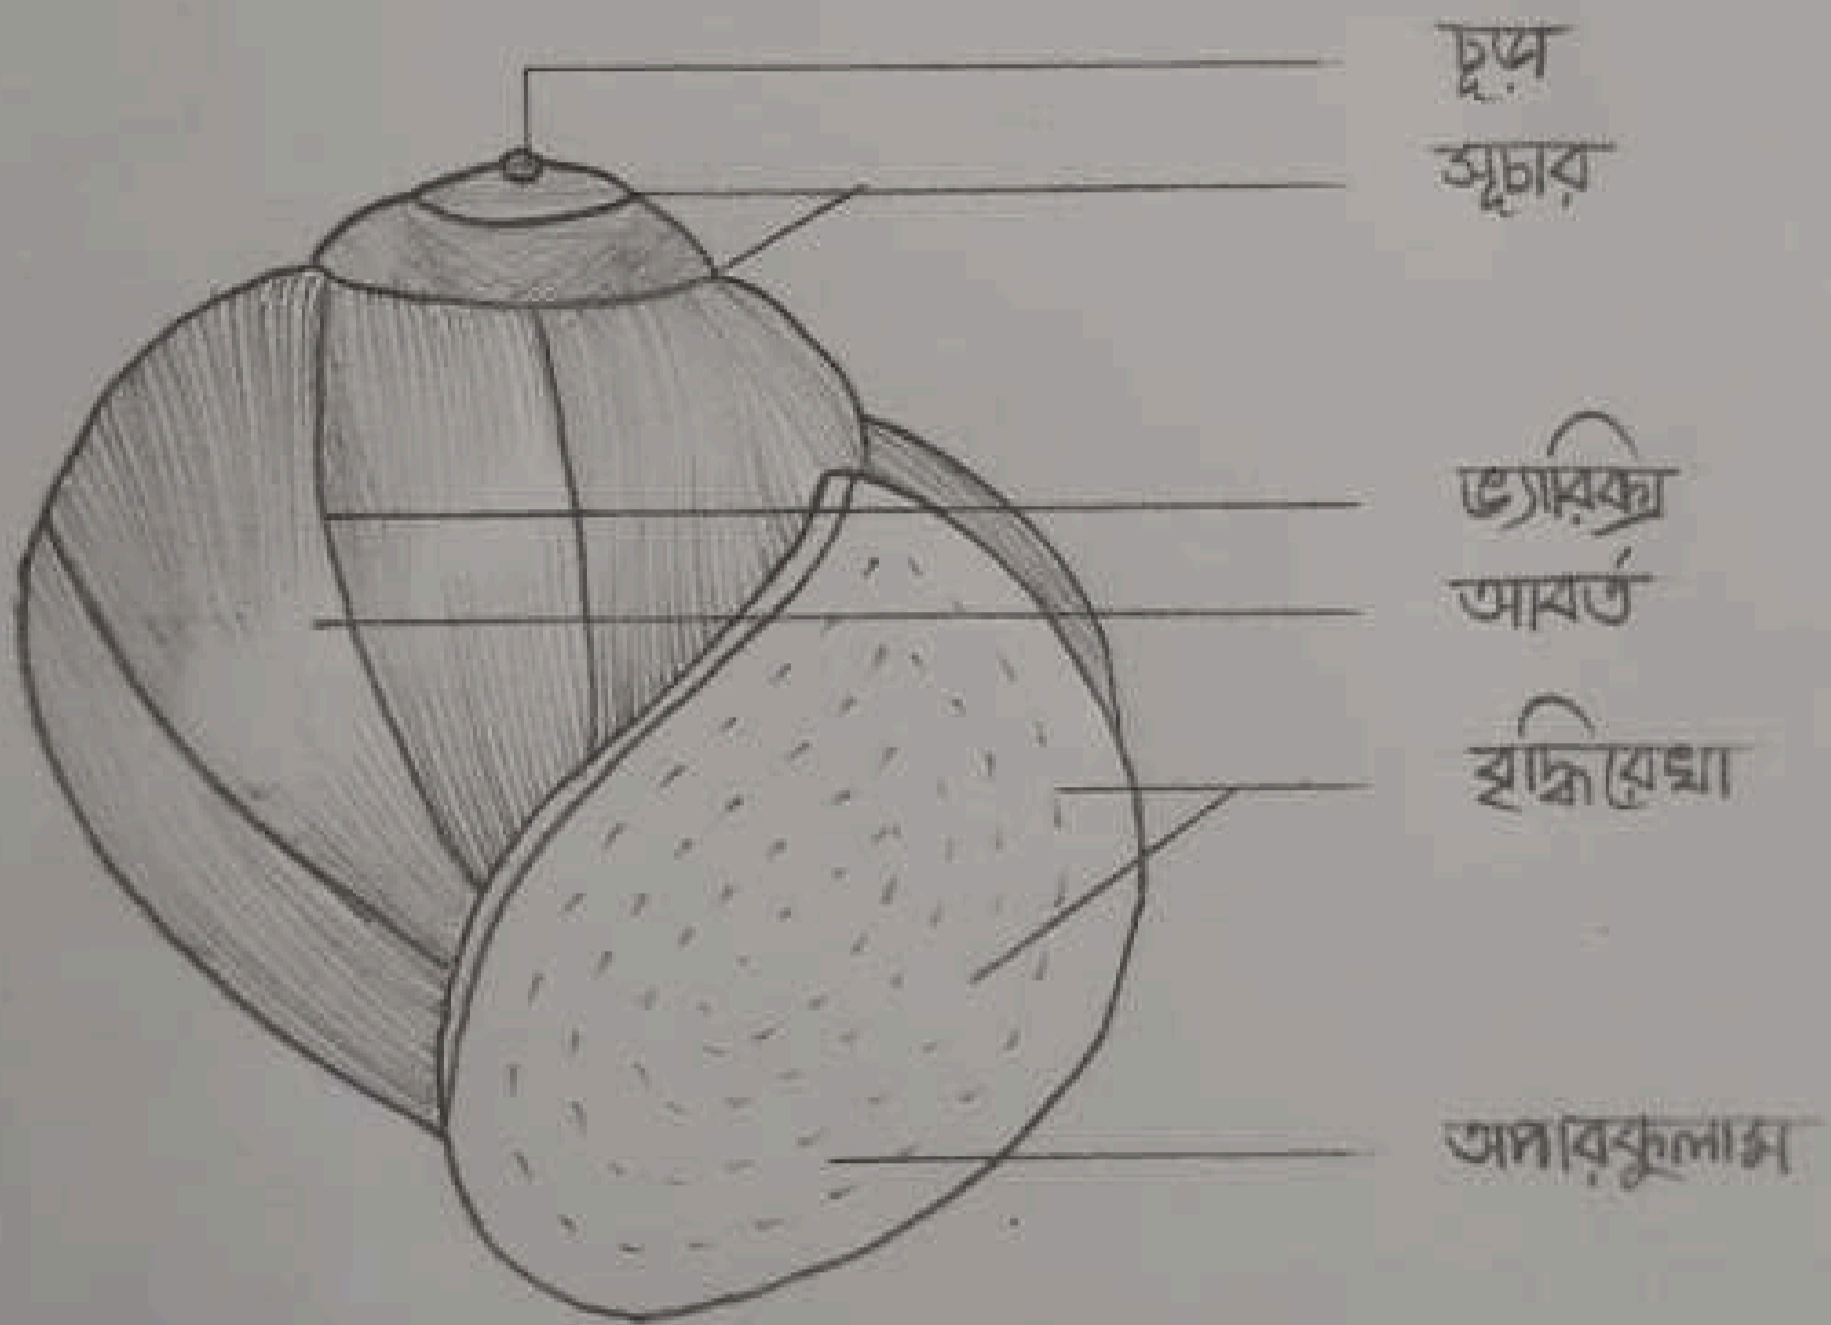 চূড়া
সূচার
ভ্যারিক্স
আবর্ত
বৃদ্ধিরেখা
অপারকুলাম